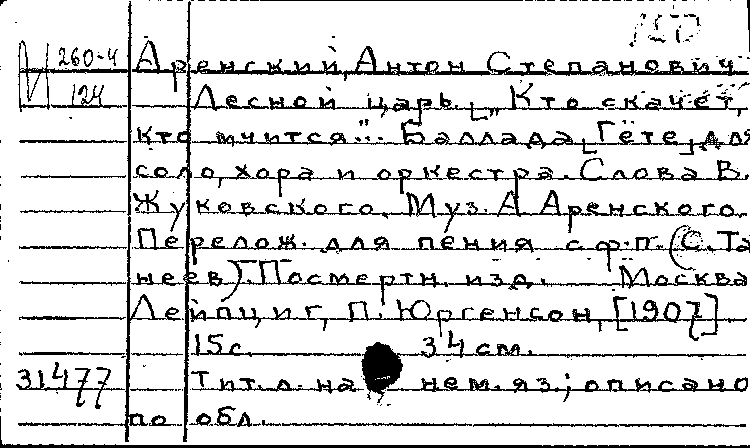 И 260-4 Аренский, Антон Степанович
124 Лесной царь. [„Кто скачет,
кто мчится"... Баллада [Гёте] для
соло, хора и оркестра. Слова В.
Жуковского. Муз. А. Аренского.
Перелож. для пения с ф.п. (С. Та
неев). Посмертн. изд. Москва
Лейпциг, П. Юргенсон, [1907]
15 с. 34 см.
31477 Тит. л. на нем. яз.; описано
по обл.